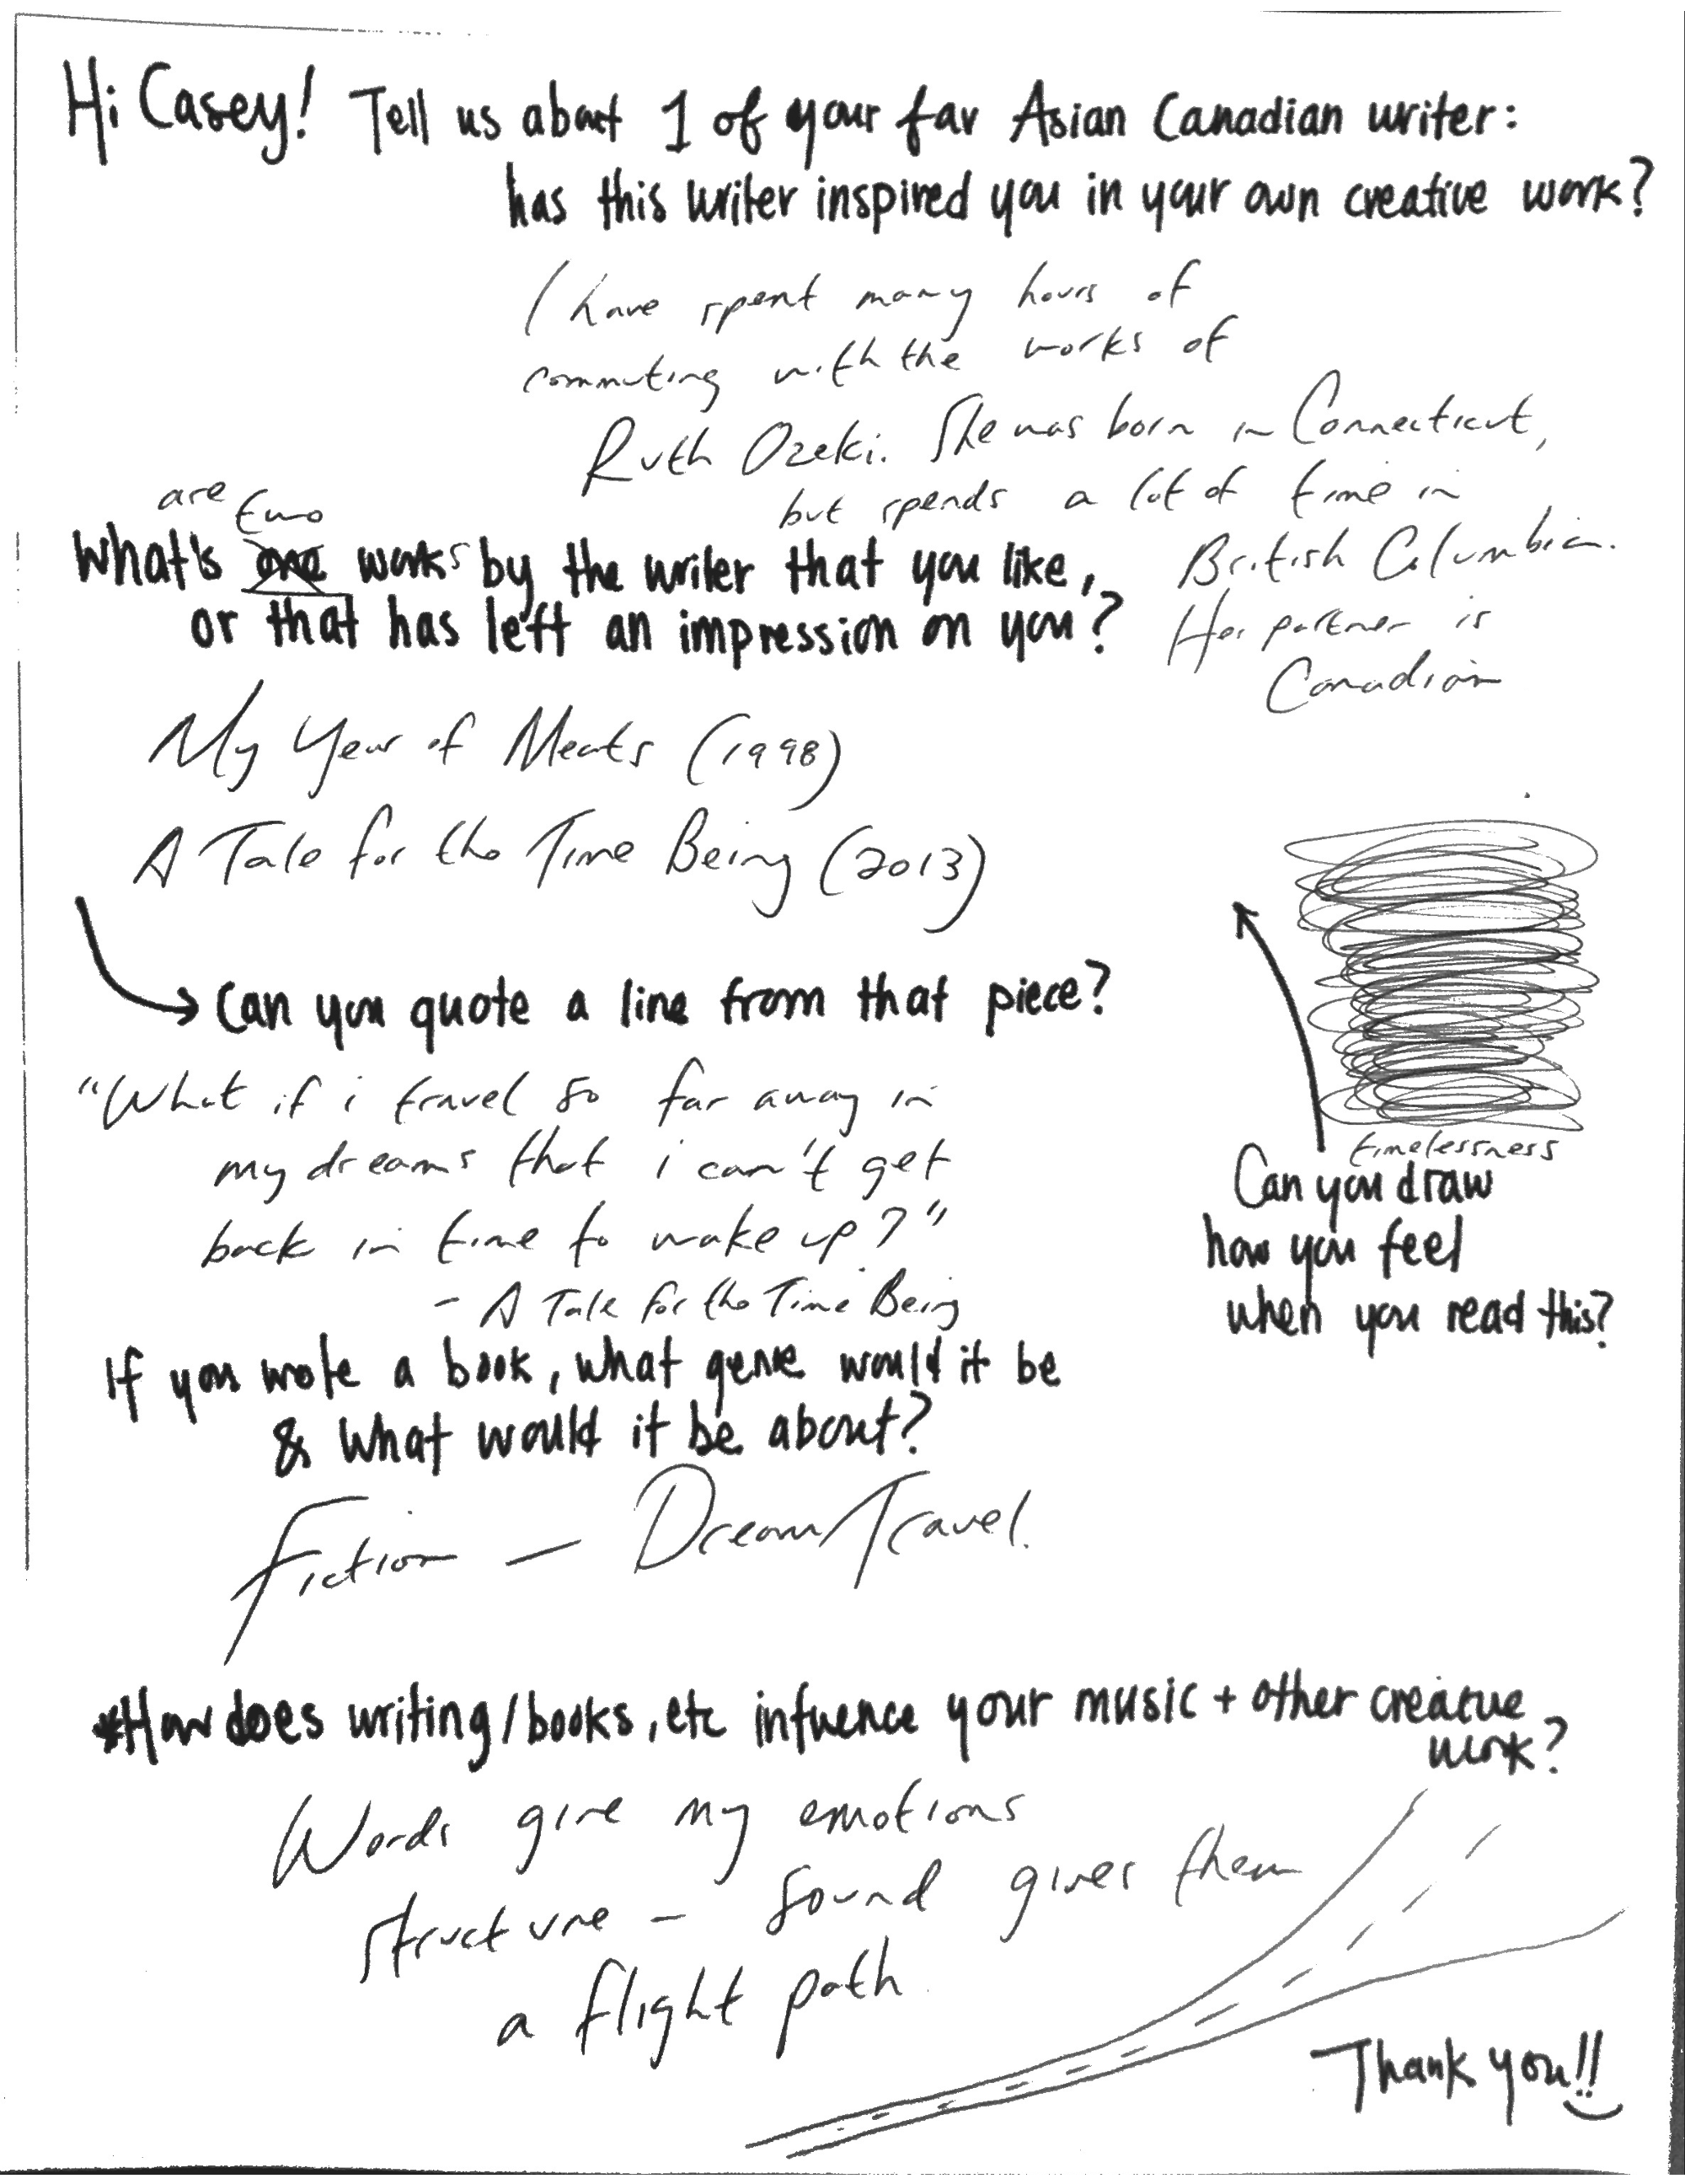 Hi Casey! Tell us about 1 of your fav Asian Canadian writer:
has this writer inspired you in your own creative work?
I have spent many hours of
commuting with the works of
Ruth Ozeki. She was born in Connecticut,
but spends a lot of time in
British Columbia.
Her partner is
Canadian
are two
What's one works by the writer that you like,
or that has left an impression on you?
My Year of Meats (1998)
A Tale for the Time Being (2013)
Can you quote a line from that piece?
"What if i travel so far away in
my dreams that i can't get
back in time to wake up?"
- A Tale for the Time Being
timelessness
Can you draw
how you feel
when you read this?
If you wrote a book, what genre would it be
& what would it be about?
Fiction — Dream Travel.
*How does writing/books, etc influence your music + other creative
work?
Words give my emotions
structure - sound gives them
a flight path
Thank you!!